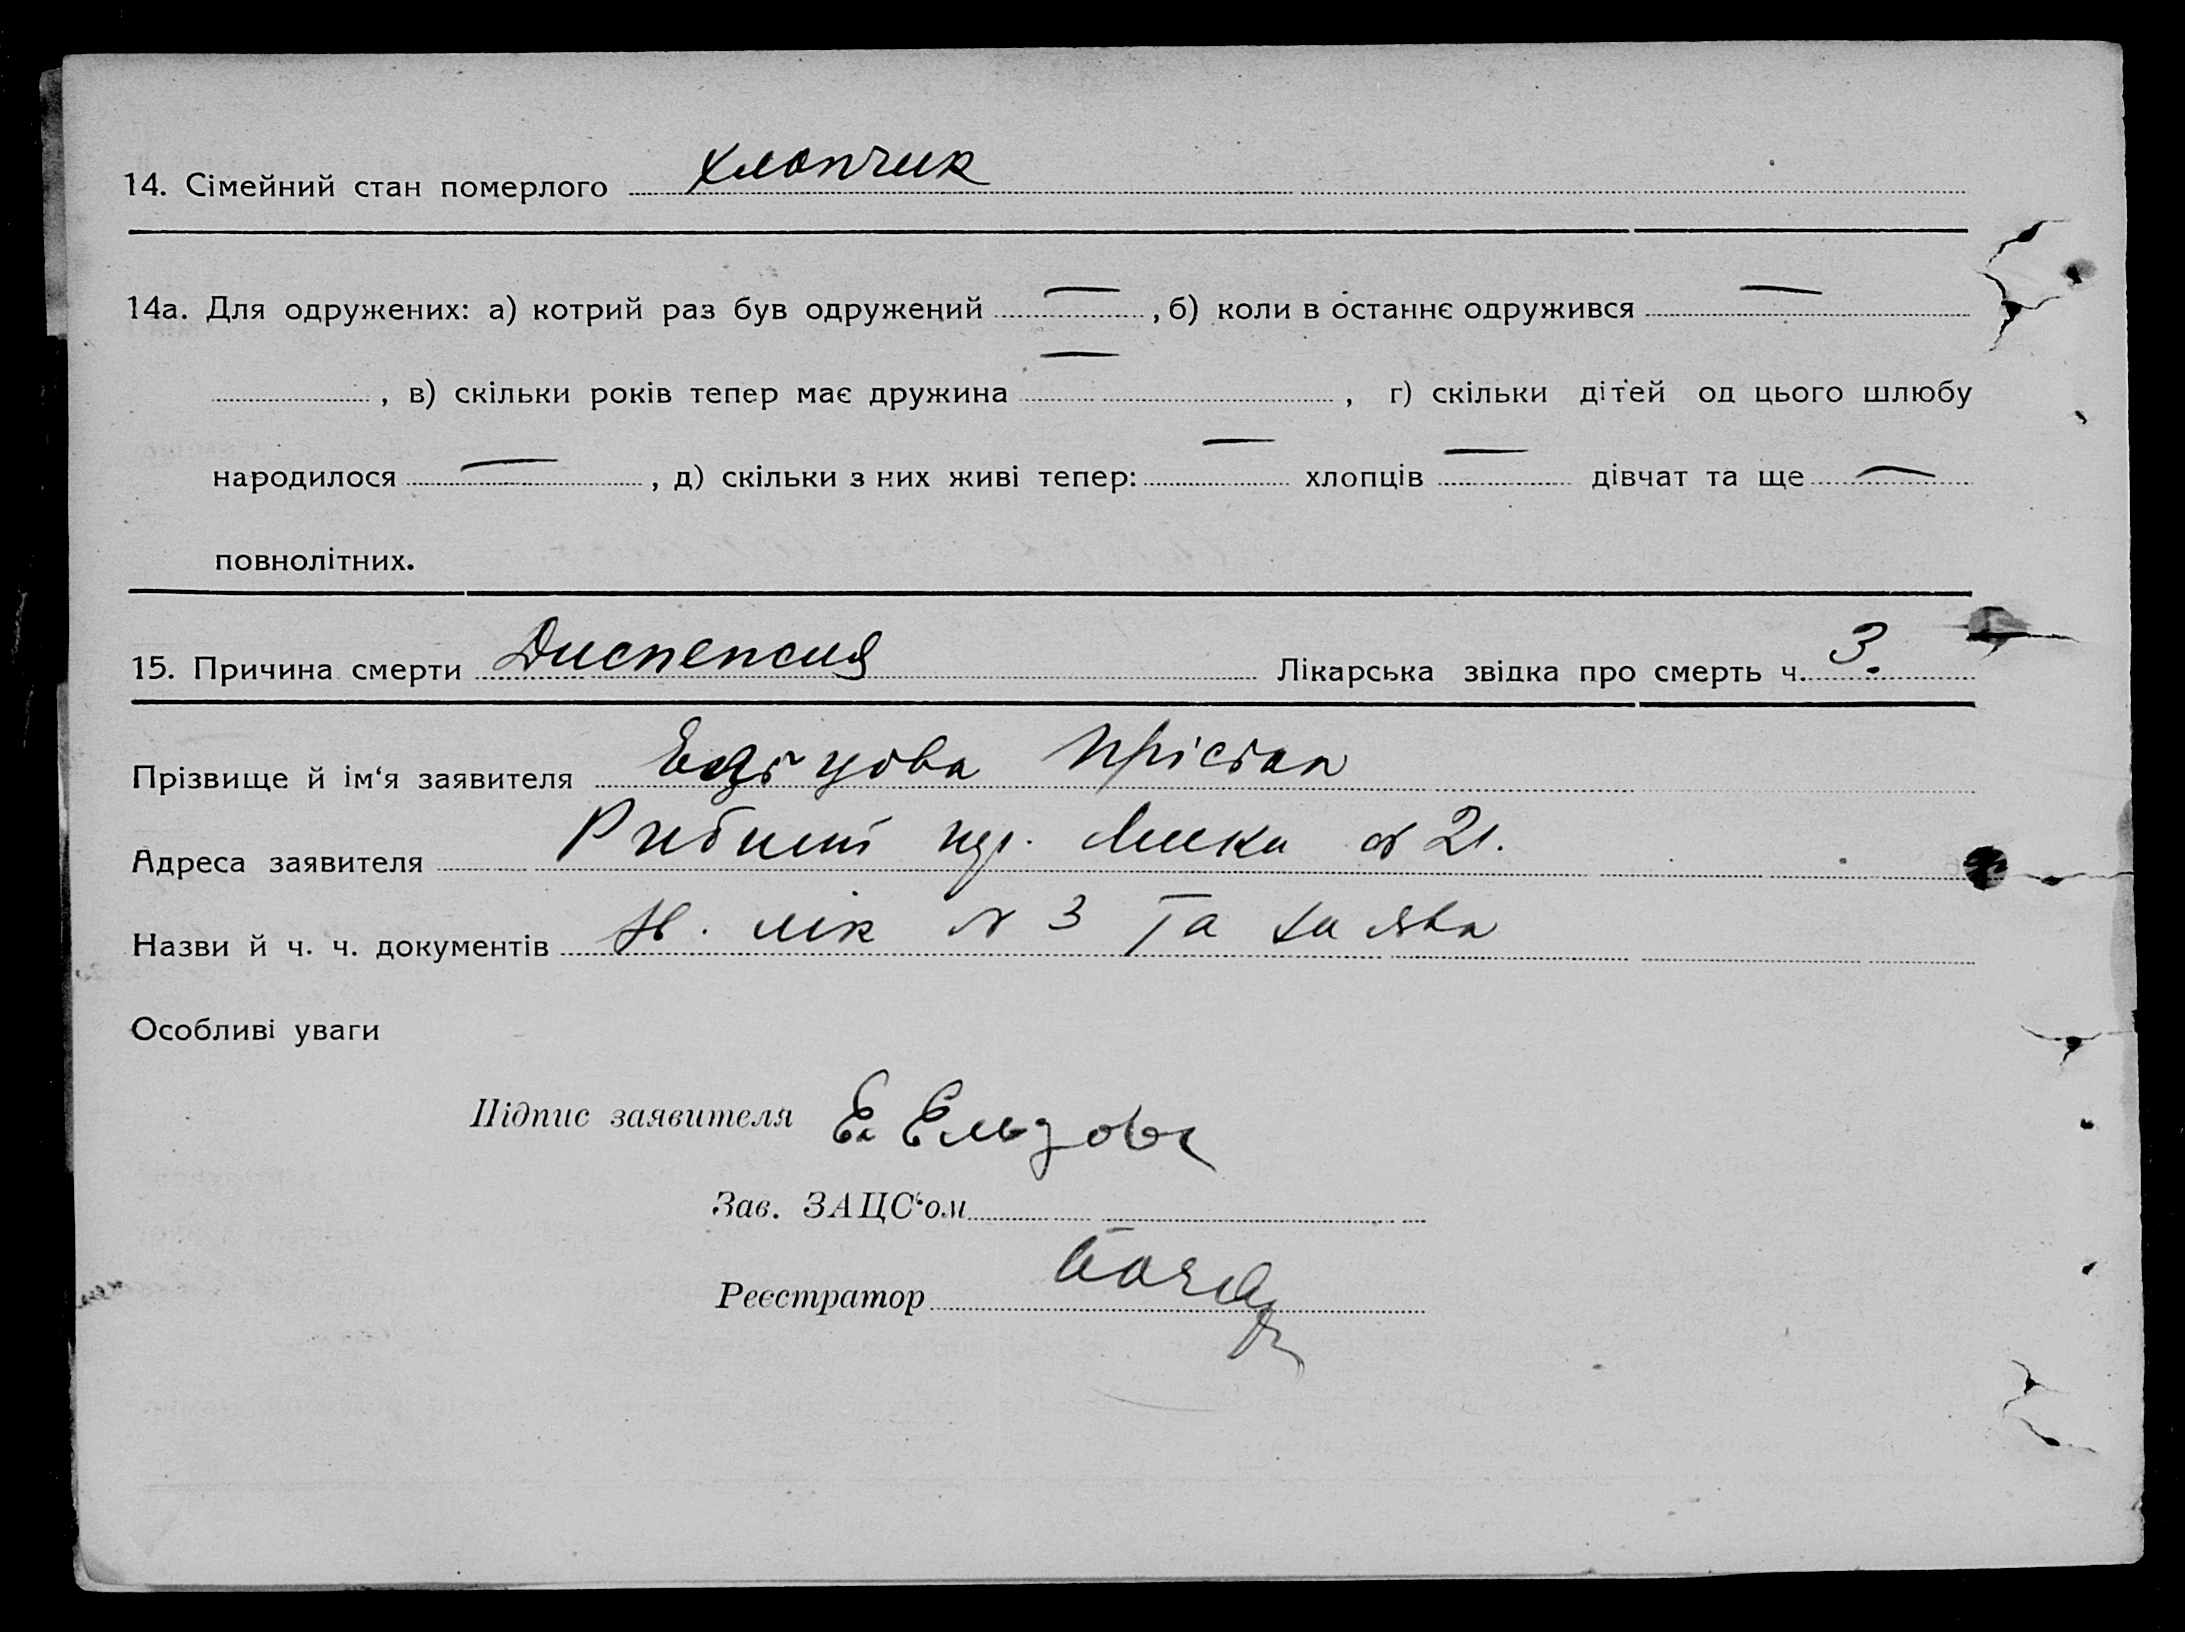 14. Сімейний стан померлого хлопчик
14а. Для одружених: а) котрий раз був одружений —, б) коли в останнє одружився —
, в) скільки років тепер має дружина —, г) скільки дітей од цього шлюбу
народилося —, д) скільки з них живі тепер: — хлопців — дівчат та ще —
повнолітних.
15. Причина смерти Диспепсия Лікарська звідка про смерть ч. 3.
Прізвище й ім‘я заявителя
Адреса заявителя № 21.
Назви й ч. ч. документів лік № 3 та заява
Особливі уваги
Підпис заявителя Е. Ельзова
Зав. ЗАЦС‘ом
Реєстратор